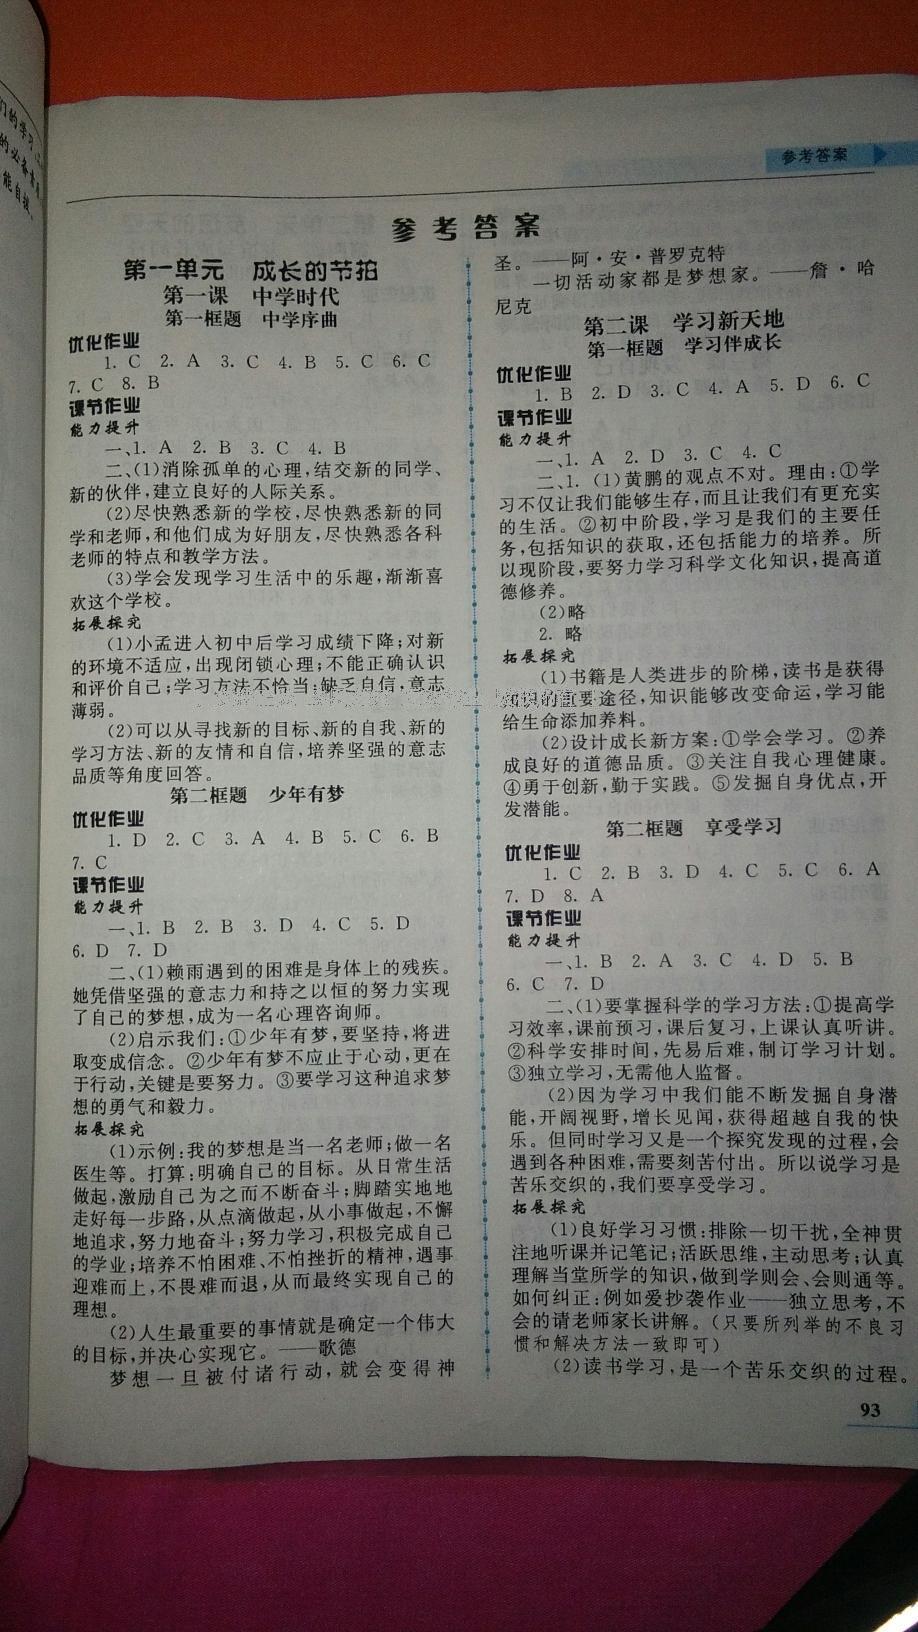 们的学习
的必备素
能自拔、
参考答案
参考答案
第一单元 成长的节拍
第一课 中学时代
第一框题 中学序曲
优化作业
1. C 2. A 3. C 4. B 5. C 6. C
7. C 8. B
课节作业
能力提升
一、1. A 2. B 3. C 4. B
二、(1)消除孤单的心理,结交新的同学、
新的伙伴,建立良好的人际关系。
(2)尽快熟悉新的学校,尽快熟悉新的同
学和老师,和他们成为好朋友,尽快熟悉各科
老师的特点和教学方法。
(3)学会发现学习生活中的乐趣,渐渐喜
欢这个学校。
拓展探究
(1)小孟进入初中后学习成绩下降;对新
的环境不适应,出现闭锁心理;不能正确认识
和评价自己;学习方法不恰当;缺乏自信,意志
薄弱。
(2)可以从寻找新的目标、新的自我、新的
学习方法、新的友情和自信,培养坚强的意志
品质等角度回答。
第二框题 少年有梦
优化作业
1. D 2. C 3. A 4. B 5. C 6. B
7. C
课节作业
能力提升
一、1. B 2. B 3. D 4. C 5. D
6. D 7. D
二、(1)赖雨遇到的困难是身体上的残疾。
她凭借坚强的意志力和持之以恒的努力实现
了自己的梦想,成为一名心理咨询师。
(2)启示我们:①少年有梦,要坚持,将进
取变成信念。②少年有梦不应止于心动,更在
于行动,关键是要努力。③要学习这种追求梦
想的勇气和毅力。
拓展探究
(1)示例:我的梦想是当一名老师;做一名
医生等。打算:明确自己的目标。从日常生活
做起,激励自己为之而不断奋斗;脚踏实地地
走好每一步路,从点滴做起,从小事做起,不懈
地追求,努力地奋斗;努力学习,积极完成自己
的学业;培养不怕困难、不怕挫折的精神,遇事
迎难而上,不畏难而退,从而最终实现自己的
理想。
(2)人生最重要的事情就是确定一个伟大
的目标,并决心实现它。——歌德
梦想一旦被付诸行动,就会变得神
圣。——阿·安·普罗克特
一切活动家都是梦想家。——詹·哈
尼克
第二课 学习新天地
第一框题 学习伴成长
优化作业
1. B 2. D 3. C 4. A 5. D 6. C
课节作业
能力提升
一、1. A 2. D 3. C 4. C
二、1. (1)黄鹏的观点不对。理由:①学
习不仅让我们能够生存,而且让我们有更充实
的生活。②初中阶段,学习是我们的主要任
务,包括知识的获取,还包括能力的培养。所
以现阶段,要努力学习科学文化知识,提高道
德修养。
(2)略
2. 略
拓展探究
(1)书籍是人类进步的阶梯,读书是获得
知识的重要途径,知识能够改变命运,学习能
给生命添加养料。
(2)设计成长新方案:①学会学习。②养
成良好的道德品质。③关注自我心理健康。
④勇于创新,勤于实践。⑤发掘自身优点,开
发潜能。
第二框题 享受学习
优化作业
1. C 2. B 3. D 4. C 5. C 6. A
7. D 8. A
课节作业
能力提升
一、1. B 2. A 3. C 4. D 5. B
6. C 7. D
二、(1)要掌握科学的学习方法:①提高学
习效率,课前预习,课后复习,上课认真听讲。
②科学安排时间,先易后难,制订学习计划。
③独立学习,无需他人监督。
(2)因为学习中我们能不断发掘自身潜
能,开阔视野,增长见闻,获得超越自我的快
乐。但同时学习又是一个探究发现的过程,会
遇到各种困难,需要刻苦付出。所以说学习是
苦乐交织的,我们要享受学习。
拓展探究
(1)良好学习习惯:排除一切干扰,全神贯
注地听课并记笔记;活跃思维,主动思考;认真
理解当堂所学的知识,做到学则会、会则通等。
如何纠正:例如爱抄袭作业——独立思考,不
会的请老师家长讲解。(只要所列举的不良习
惯和解决方法一致即可)
(2)读书学习,是一个苦乐交织的过程。
93